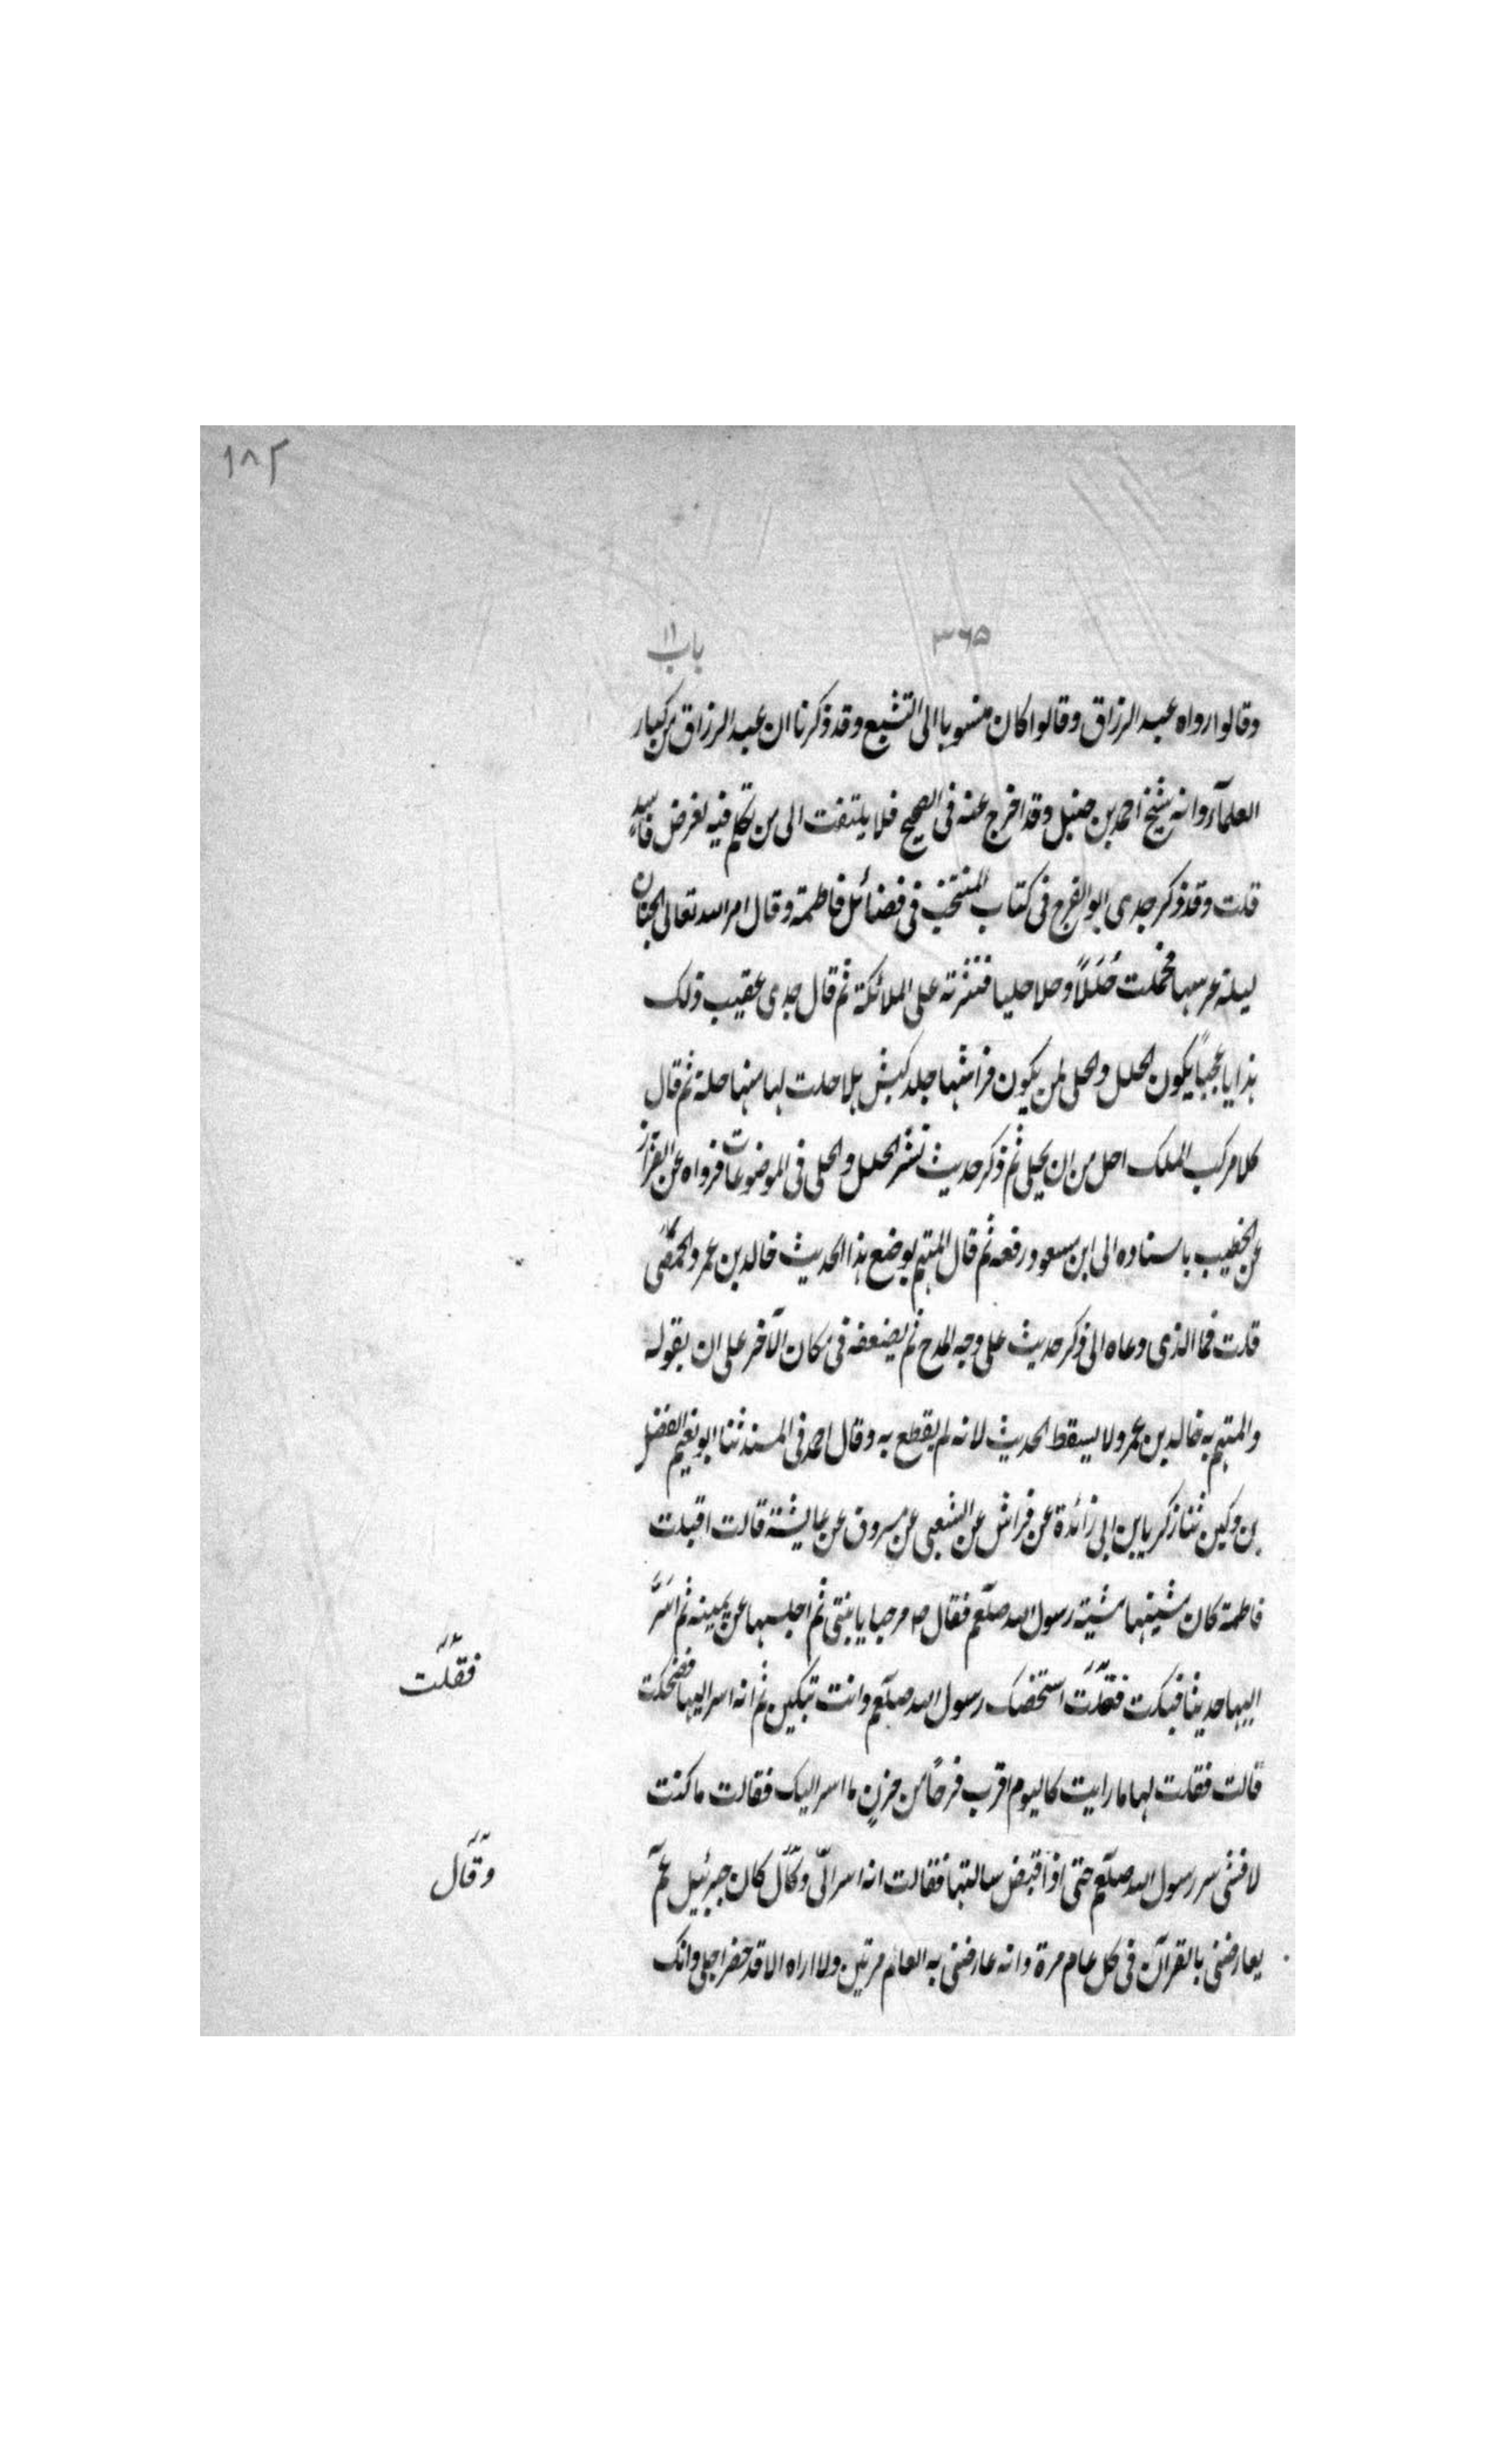 ١٨٢
٣٦٥
باب ١١
وقالوا رواه عبد الرزاق وقالوا كان منسوبا الى التشيع وقد ذكرنا ان عبد الرزاق من كبار
العلمآء وانه شيخ احمد بن حنبل وقد اخرج عنه فى الصحيح فلا يلتفت الى من تكلم فيه لغرض فاسد
قلت وقد ذكر جدى ابو الفرج فى كتاب المنتخب فى فضائل فاطمة وقال امر الله تعالى الجنان
ليلة عرسها فحملت حُلَلًا وحلا حليا فنثرته على الملائكة ثم قال جدى عقيب ذلك
هذا يا عجباً يكون الحلل والحلى لمن يكون فراشها جلد كبش هلا حلت لها منها حلة ثم قال
كلا مركب الملك احل من ان يحلى ثم ذكر حديث نثر الحلل والحلى فى الموضوعات فرواه عن القزاز
عن الخطيب باسناده الى ابن مسعود رفعه ثم قال المتهم بوضع هذا الحديث خالد بن عمرو الحمصى
قلت فما الذى دعاه الى ذكر حديث على وجه المدح ثم يضعفه فى مكان الآخر على ان بقوله
والمتهم به خالد بن عمرو لا يسقط الحديث لانه لم يقطع به وقال احمد فى المسند ثنا ابو نعيم الفضل
بن دكين ثنا زكريا بن ابى زائدة عن فراش عن الشعبى عن مسروق عن عايشة قالت اقبلت
فاطمة كان مشيتها مشية رسول الله صلعم فقال ص مرحبا يا بنتى ثم اجلسها عن يمينه ثم اسَرَّ
اليها حديثا فبكت فقلت استخصك رسول الله صلعم وانت تبكين ثم انه اسر اليها فضحكت
فقلت
قالت فقلت لها ما رايت كاليوم اقرب فرحًا من حزنٍ ما اسر اليك فقالت ما كنت
لافشى سر رسول الله صلعم حتى اذا قبض سالتها فقالت انه اسر الىّ وقال كان جبرئيل عم
وقال
يعارضنى بالقرآن فى كل عام مرة وانه عارضنى به العام مرتين ولا اراه الا قد حضر اجلى وانك